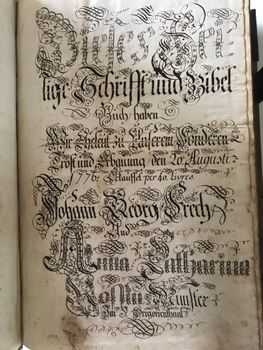 Dieses Hei-
lige Schrifft und Bibel
Buch haben
Wir Eheleut zu Unserem Sonderen
Trost und Erbauung den 20. Augusti
1776. Erkauffet per 40. Livres
Johann Georg Frech
Und
Anna Catharina
Münster
Im S. Gregorienthal